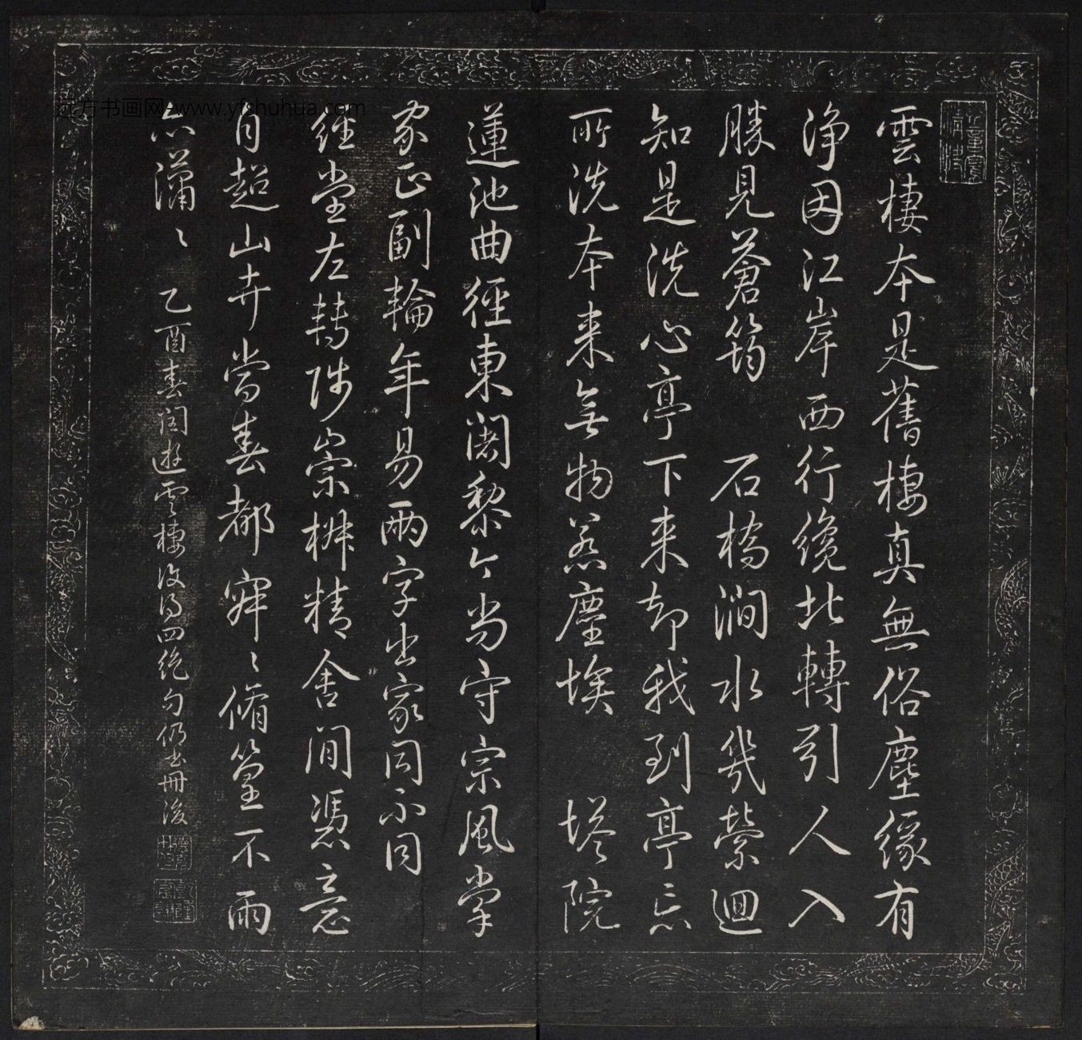 雲棲本是舊棲真無俗塵緣有
淨因江岸西行纔北轉引人入
勝見蒼筠 石橋澗水幾縈迴
知是洗心亭下來却我到亭忘
所洗本來無物惹塵埃 塔院
蓮池曲徑東闍黎今尚守宗風掌
家正副輪年易兩字出家同不同
經堂左轉陟崇椒精舍閒憑意
自超山卉當春都寂〻脩篁不雨
亦瀟〻 乙酉春閏遊雲棲復得四絕句仍書冊後
远方书画网 www.yfshuhua.com